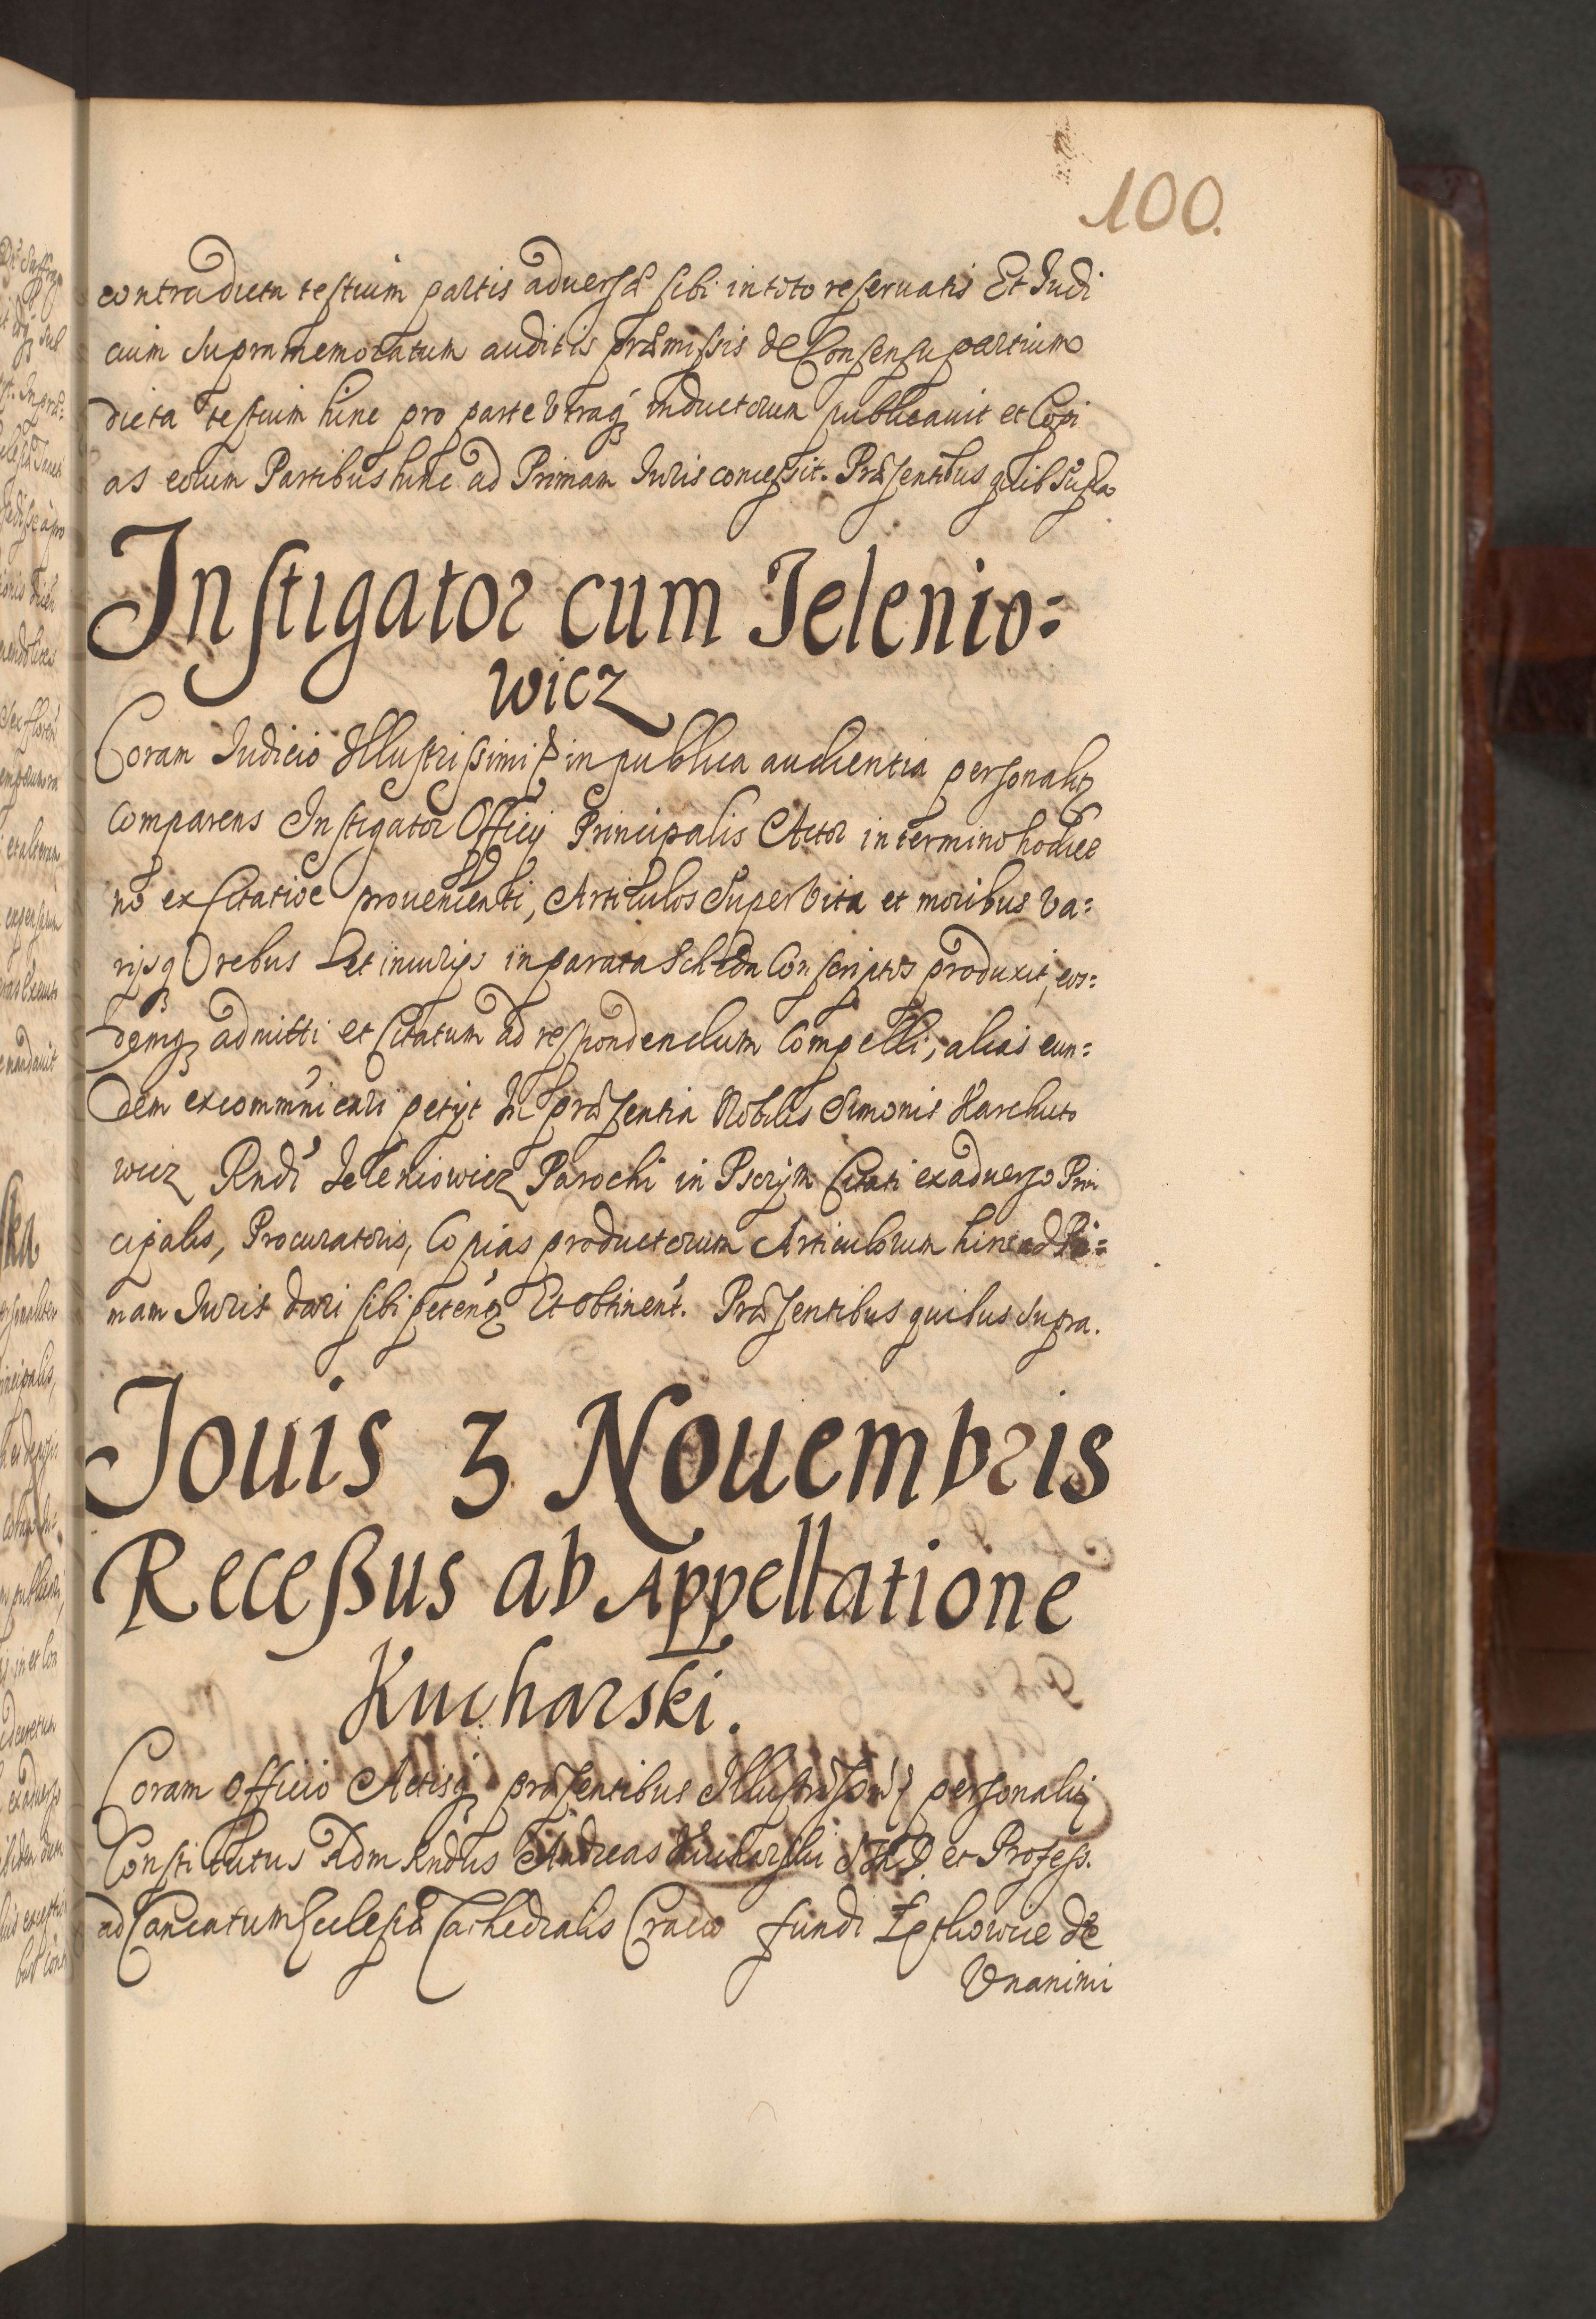 100.
contra dicta testium partis aduersæ sibi in toto reseruatis Et Judi
cium supra memoratum auditis præmissis de Consensu partium
dicta testium hinc pro parte Vtraq; inductorum publicauit et Copi
as eorum Partibus hinc ad Primam Juris concessit. Præsentibus quib Supra
Instigator cum Jelenio=
wicz
Coram Judicio Illustrissimi in publica audientia personalr
Comparens Instigator Officij Principalis Actor in termino hodier
no ex Citatioe prouenienti, Articulos Super Vita et moribus Va=
rijsq; rebus et iniurijs in parata Scheda Conscriptos produxit, eos=
demq; admitti et Citatum ad respondendum Compelli, alias eun=
dem excommunicari petijt In præsentia Nobilis Simonis Harchuto
wicz Rndi Jeleniowicz Parochi in Pscrym Citati ex aduerso Prin
cipalis, Procuratoris, Copias productorum Articulorum hinc ad Pri=
mam Juris dari sibi peten Et obtinen. Præsentibus quibus supra.
Jouis 3 Nouembris
Recessus ab Appellatione
Kucharski.
Coram Officio Actisq; præsentibus Illustrissimi personalr
Constitutus Adm Rndus Andreas Kucharski et Profess.
ad Canonicatum Ecclesiæ Cathedralis Craco fundi de
Vnanimi